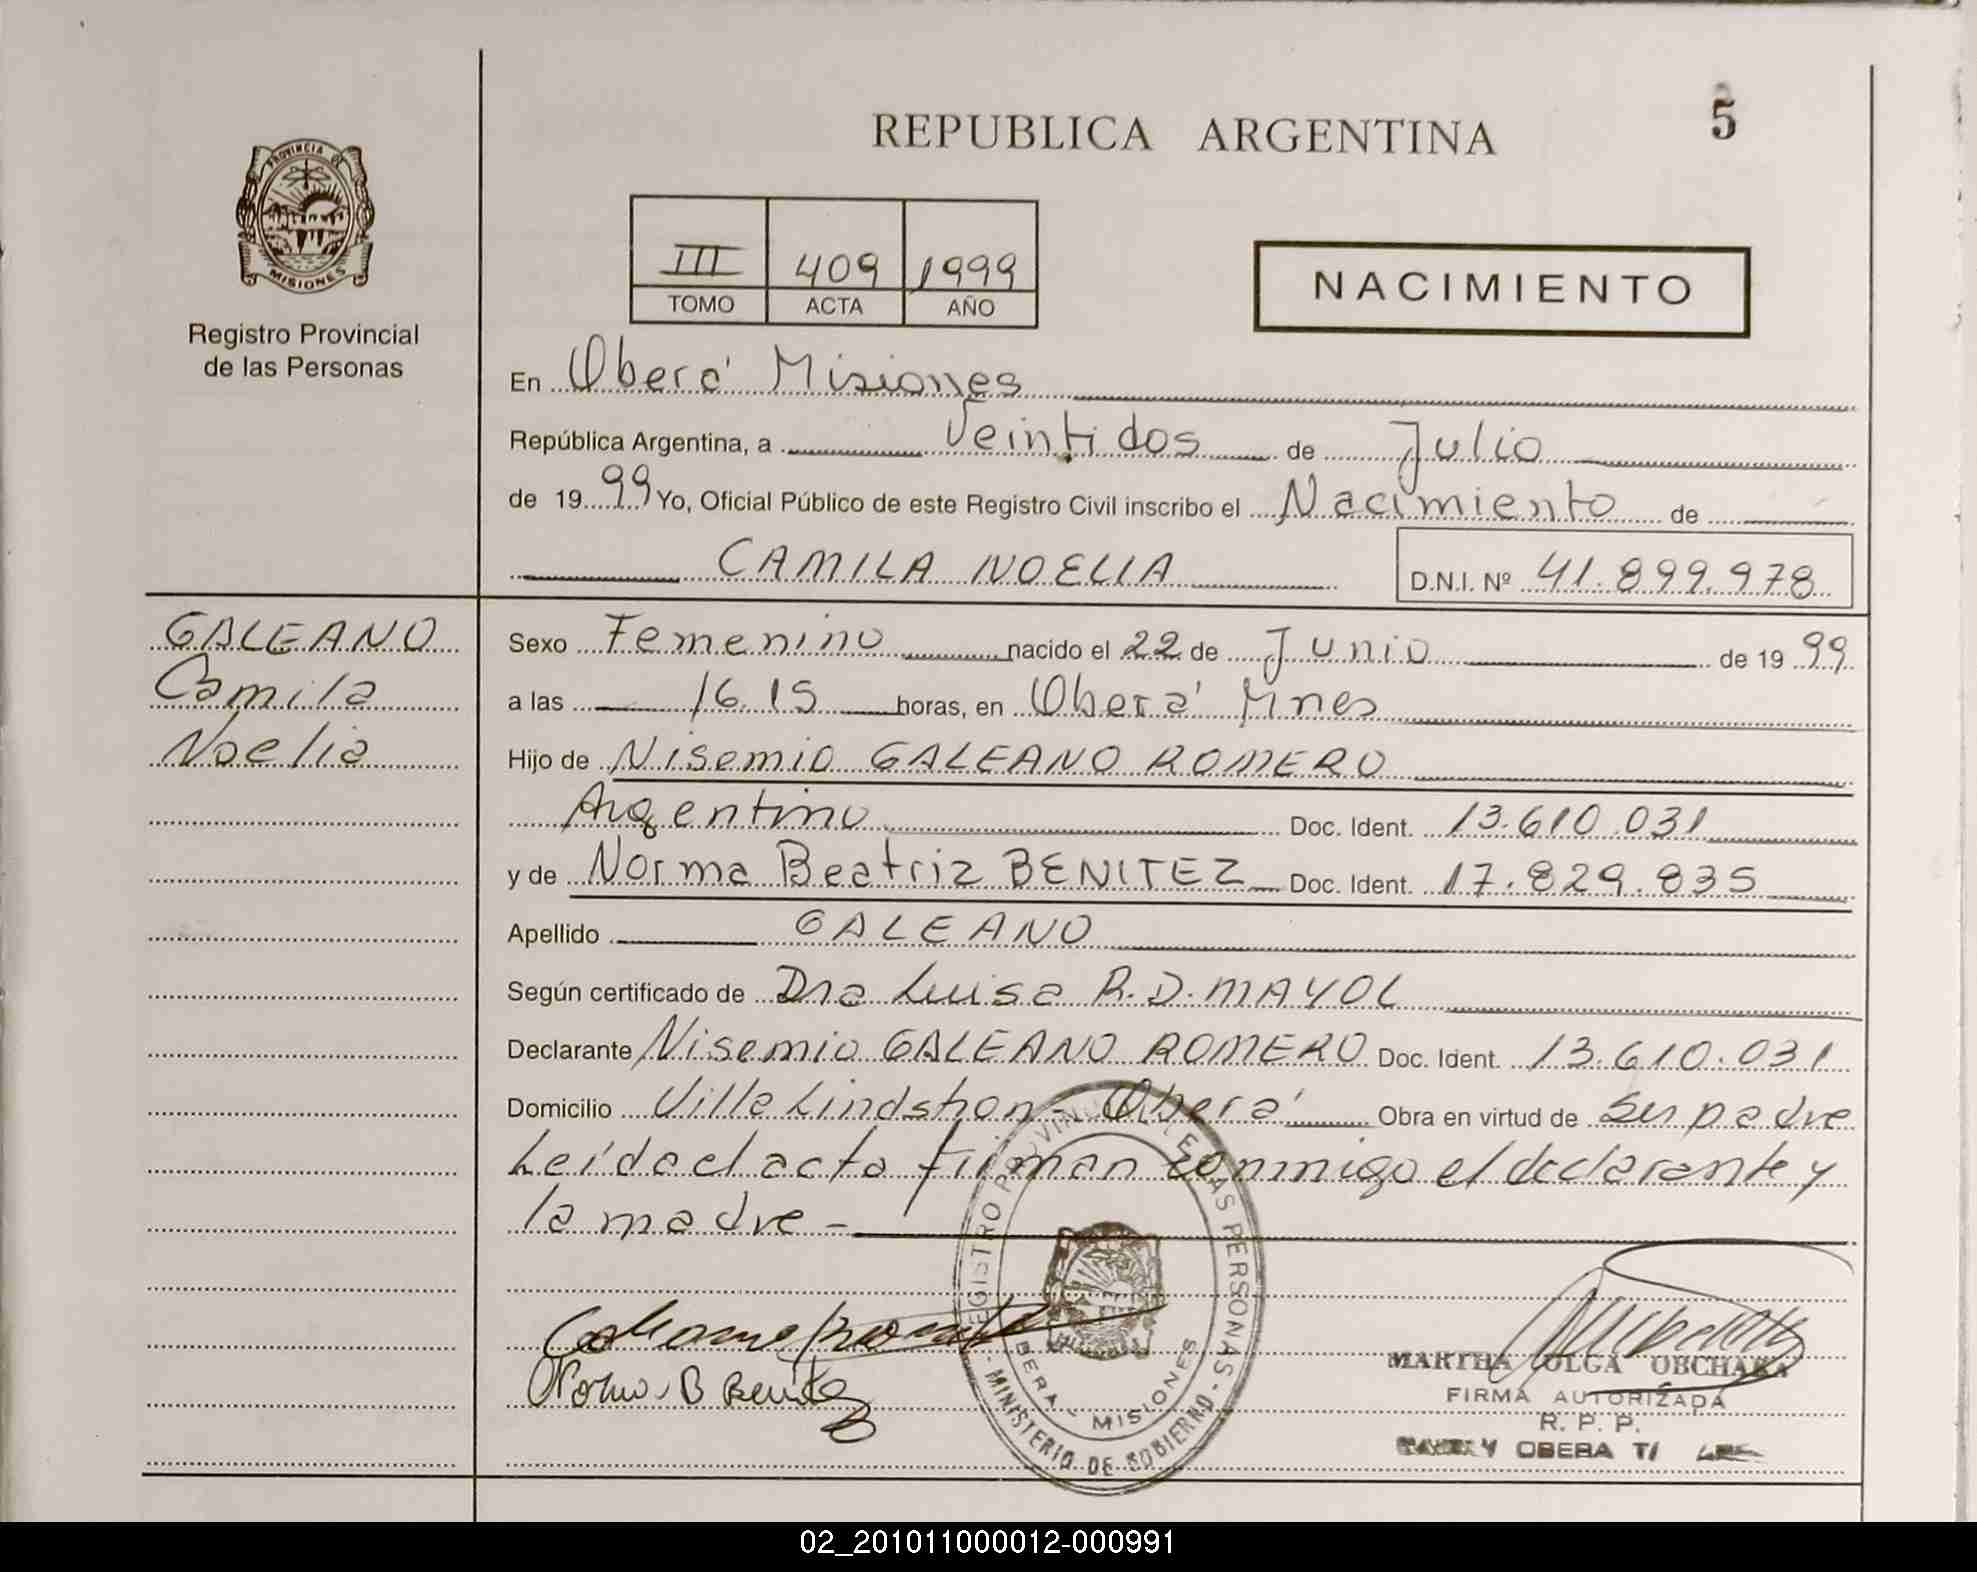 5
REPUBLICA ARGENTINA
PROVINCIA DE
MISIONES
Registro Provincial
de las Personas
III 409 1999
TOMO ACTA AÑO
NACIMIENTO
En Oberá Misiones
República Argentina, a Veintidos de Julio
de 1999 Yo, Oficial Público de este Registro Civil inscribo el Nacimiento de
CAMILA NOELIA D.N.I. Nº 41.899.978
GALEANO
Camila
Noelia
Sexo Femenino nacido el 22 de Junio de 1999
a las 16.15 horas, en Oberá Mnes
Hijo de Nisemio GALEANO ROMERO
Argentino Doc. Ident. 13.610.031
y de Norma Beatriz BENITEZ Doc. Ident. 17.829.835
Apellido GALEANO
Según certificado de Dra Luisa R.D. MAYOL
Declarante Nisemio GALEANO ROMERO Doc. Ident. 13.610.031
Domicilio Villa Lindstron - Oberá Obra en virtud de Su padre
Leída el acta firman conmigo el declarante y
la madre -
REGISTRO PROVINCIAL DE LAS PERSONAS
OBERA - MISIONES
- MINISTERIO DE GOBIERNO -
Norma B Benitez
MARTHA OLGA OBCHARA
FIRMA AUTORIZADA
R. P. P.
OBERA T/
02_201011000012-000991